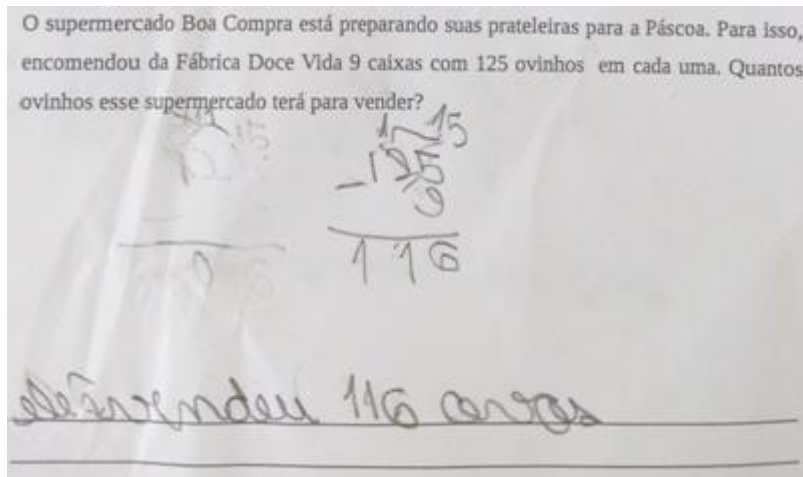 O supermercado Boa Compra está preparando suas prateleiras para a Páscoa. Para isso,
encomendou da Fábrica Doce Vida 9 caixas com 125 ovinhos em cada uma. Quantos
ovinhos esse supermercado terá para vender?
1 15
- 125
9
116
vendeu 116